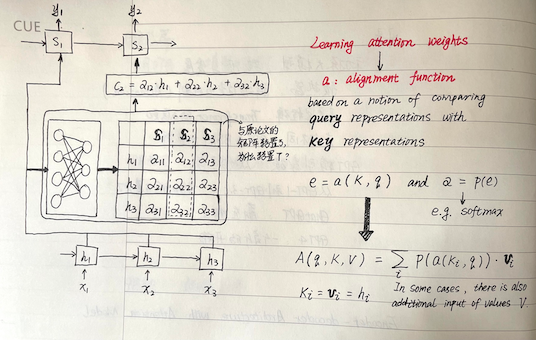 CUE
y₁ y₂
S₁ S₂
C₂ = α₁₂·h₁ + α₂₂·h₂ + α₃₂·h₃
S₁ S₂ S₃
h₁ α₁₁ α₁₂ α₁₃
h₂ α₂₁ α₂₂ α₂₃
h₃ α₃₁ α₃₂ α₃₃
与原论文的
为什么
h₁ h₂ h₃
x₁ x₂ x₃
Learning attention weights
a : alignment function
based on a notion of comparing
query representations with
key representations
e = a(K, q) and α = p(e)
e.g. softmax
A(q, K, V) = ∑ᵢ p(a(kᵢ, q)) · vᵢ
Kᵢ = vᵢ = hᵢ
In some cases, there is also
additional input of values V.